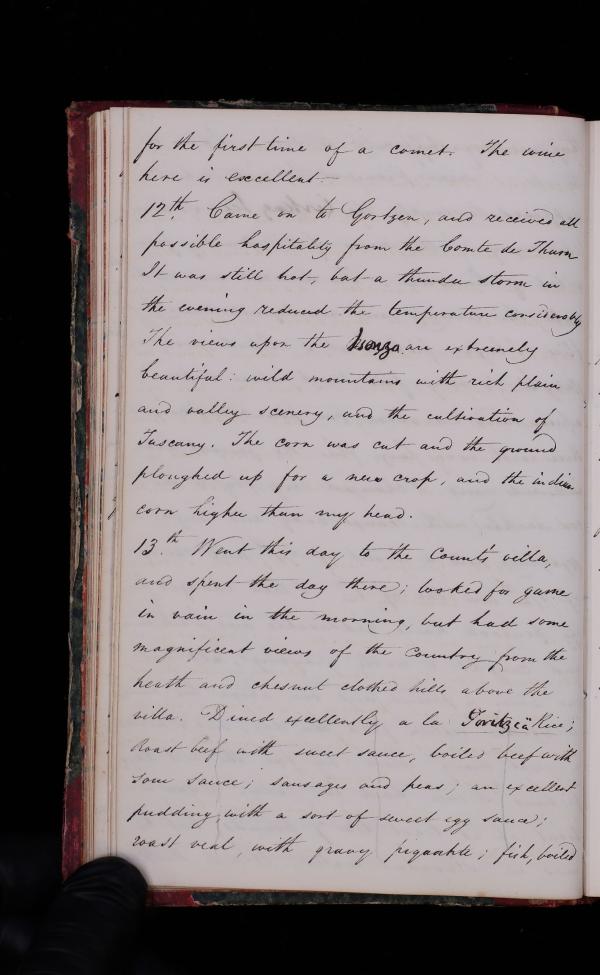 for the first time of a comet. The wine
here is excellent.—
12th. Came on to Gortzen, and received all
possible hospitality from the Comte de Thurn
It was still hot, but a thunder storm in
the evening reduced the temperature considerably
The views upon the Isonzo are extremely
beautiful: wild mountains with rich plain
and valley scenery, and the cultivation of
Tuscany. The corn was cut and the ground
ploughed up for a new crop, and the indian
corn higher than my head.
13.th Went this day to the Counts villa,
and spent the day there; looked for game
in vain in the morning, but had some
magnificent views of the Country from the
heath and chesnut clothed hills above the
villa. Dined excellently a la Rice;
Roast beef with sweet sauce, boiled beef with
sour sauce; sausages and peas; an excellent
pudding with a sort of sweet egg sauce;
roast veal, with gravy piquante; fish, boiled